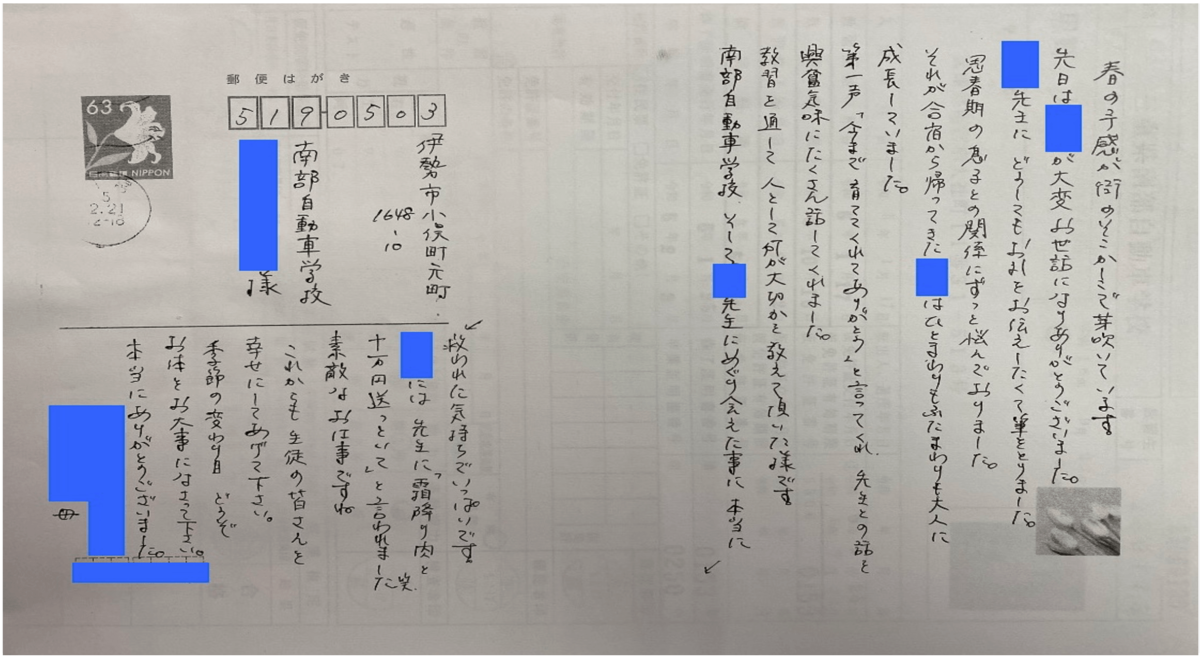 春の予感が街のそこかしこで芽吹いています。
先日は
が大変お世話になりありがとうございました。
先生に どうしてもお礼をお伝えしたくて筆をとりました。
思春期の息子との関係にずっと悩んでおりました。
それが合宿から帰ってきた
はひとまわりもふたまわりも大人に
成長していました。
第一声「今まで育ててくれてありがとう」と言ってくれ、先生との話を
興奮気味にたくさん話してくれました。
教習を通して 人として何が大切かを教えて頂いた様です。
南部自動車学校、そして
先生にめぐり会えた事に 本当に
↙
郵便はがき
63
日本郵便 NIPPON
5
2.21
5190503
伊勢市小俣町元町
1648-10
南部自動車学校
様
↙
救われた気持ちでいっぱいです。
には 先生に「霜降り肉と
十万円送っといて」と言われました笑。
素敵なお仕事ですね
これからも生徒の皆さんを
幸せにしてあげて下さい。
季節の変わり目 どうぞ
お体をお大事になさって下さい。
本当にありがとうございました。
母